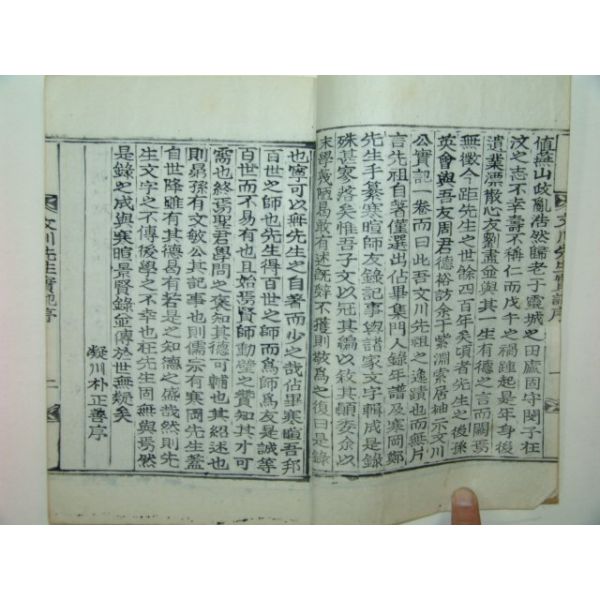 文川先生實記序
愼燕山政亂浩然歸老于靈城之田廬固守閔子在
汶之志不幸壽不稱仁而戊午之禍踵起是年身後
遺業漂散心友劉盡金與其一生有德之言而關焉
無徵今距先生之世餘四百年矣頃者先生之後孫
英會與吾友周君德裕訪余于紫淵索居袖示文川
公實記一卷而曰此吾文川先祖之遺蹟也而無片
言先祖自著僅選出佔畢集門人錄年譜及寒岡鄭
先生手纂寒暄師友錄記事與諸家文字輯成是錄
殊甚寥落矣惟吾子文以冠其編以敘其顚委余以
末學義陋曷敢有述旣辭不獲則敬爲之復曰是錄
也寧可以無先生之自著而少之哉佔畢寒暄吾邦
百世之師也先生得百世之師而爲師爲友是誠等
百世而不易有也且始焉賢師動璧之贊知其才可
需也終焉聖君學問之褒知其德可輔也其紹述也
則昴孫有文敏公其記事也則儒宗有寒岡先生蓋
自世降雖有其德曷有若是之知德之盛哉然則先
生文字之不傳後學之不幸也在先生固無與焉然
是錄之成與寒暄景賢錄並傳於世無疑矣
凝川朴正善序
文川先生實記序
二